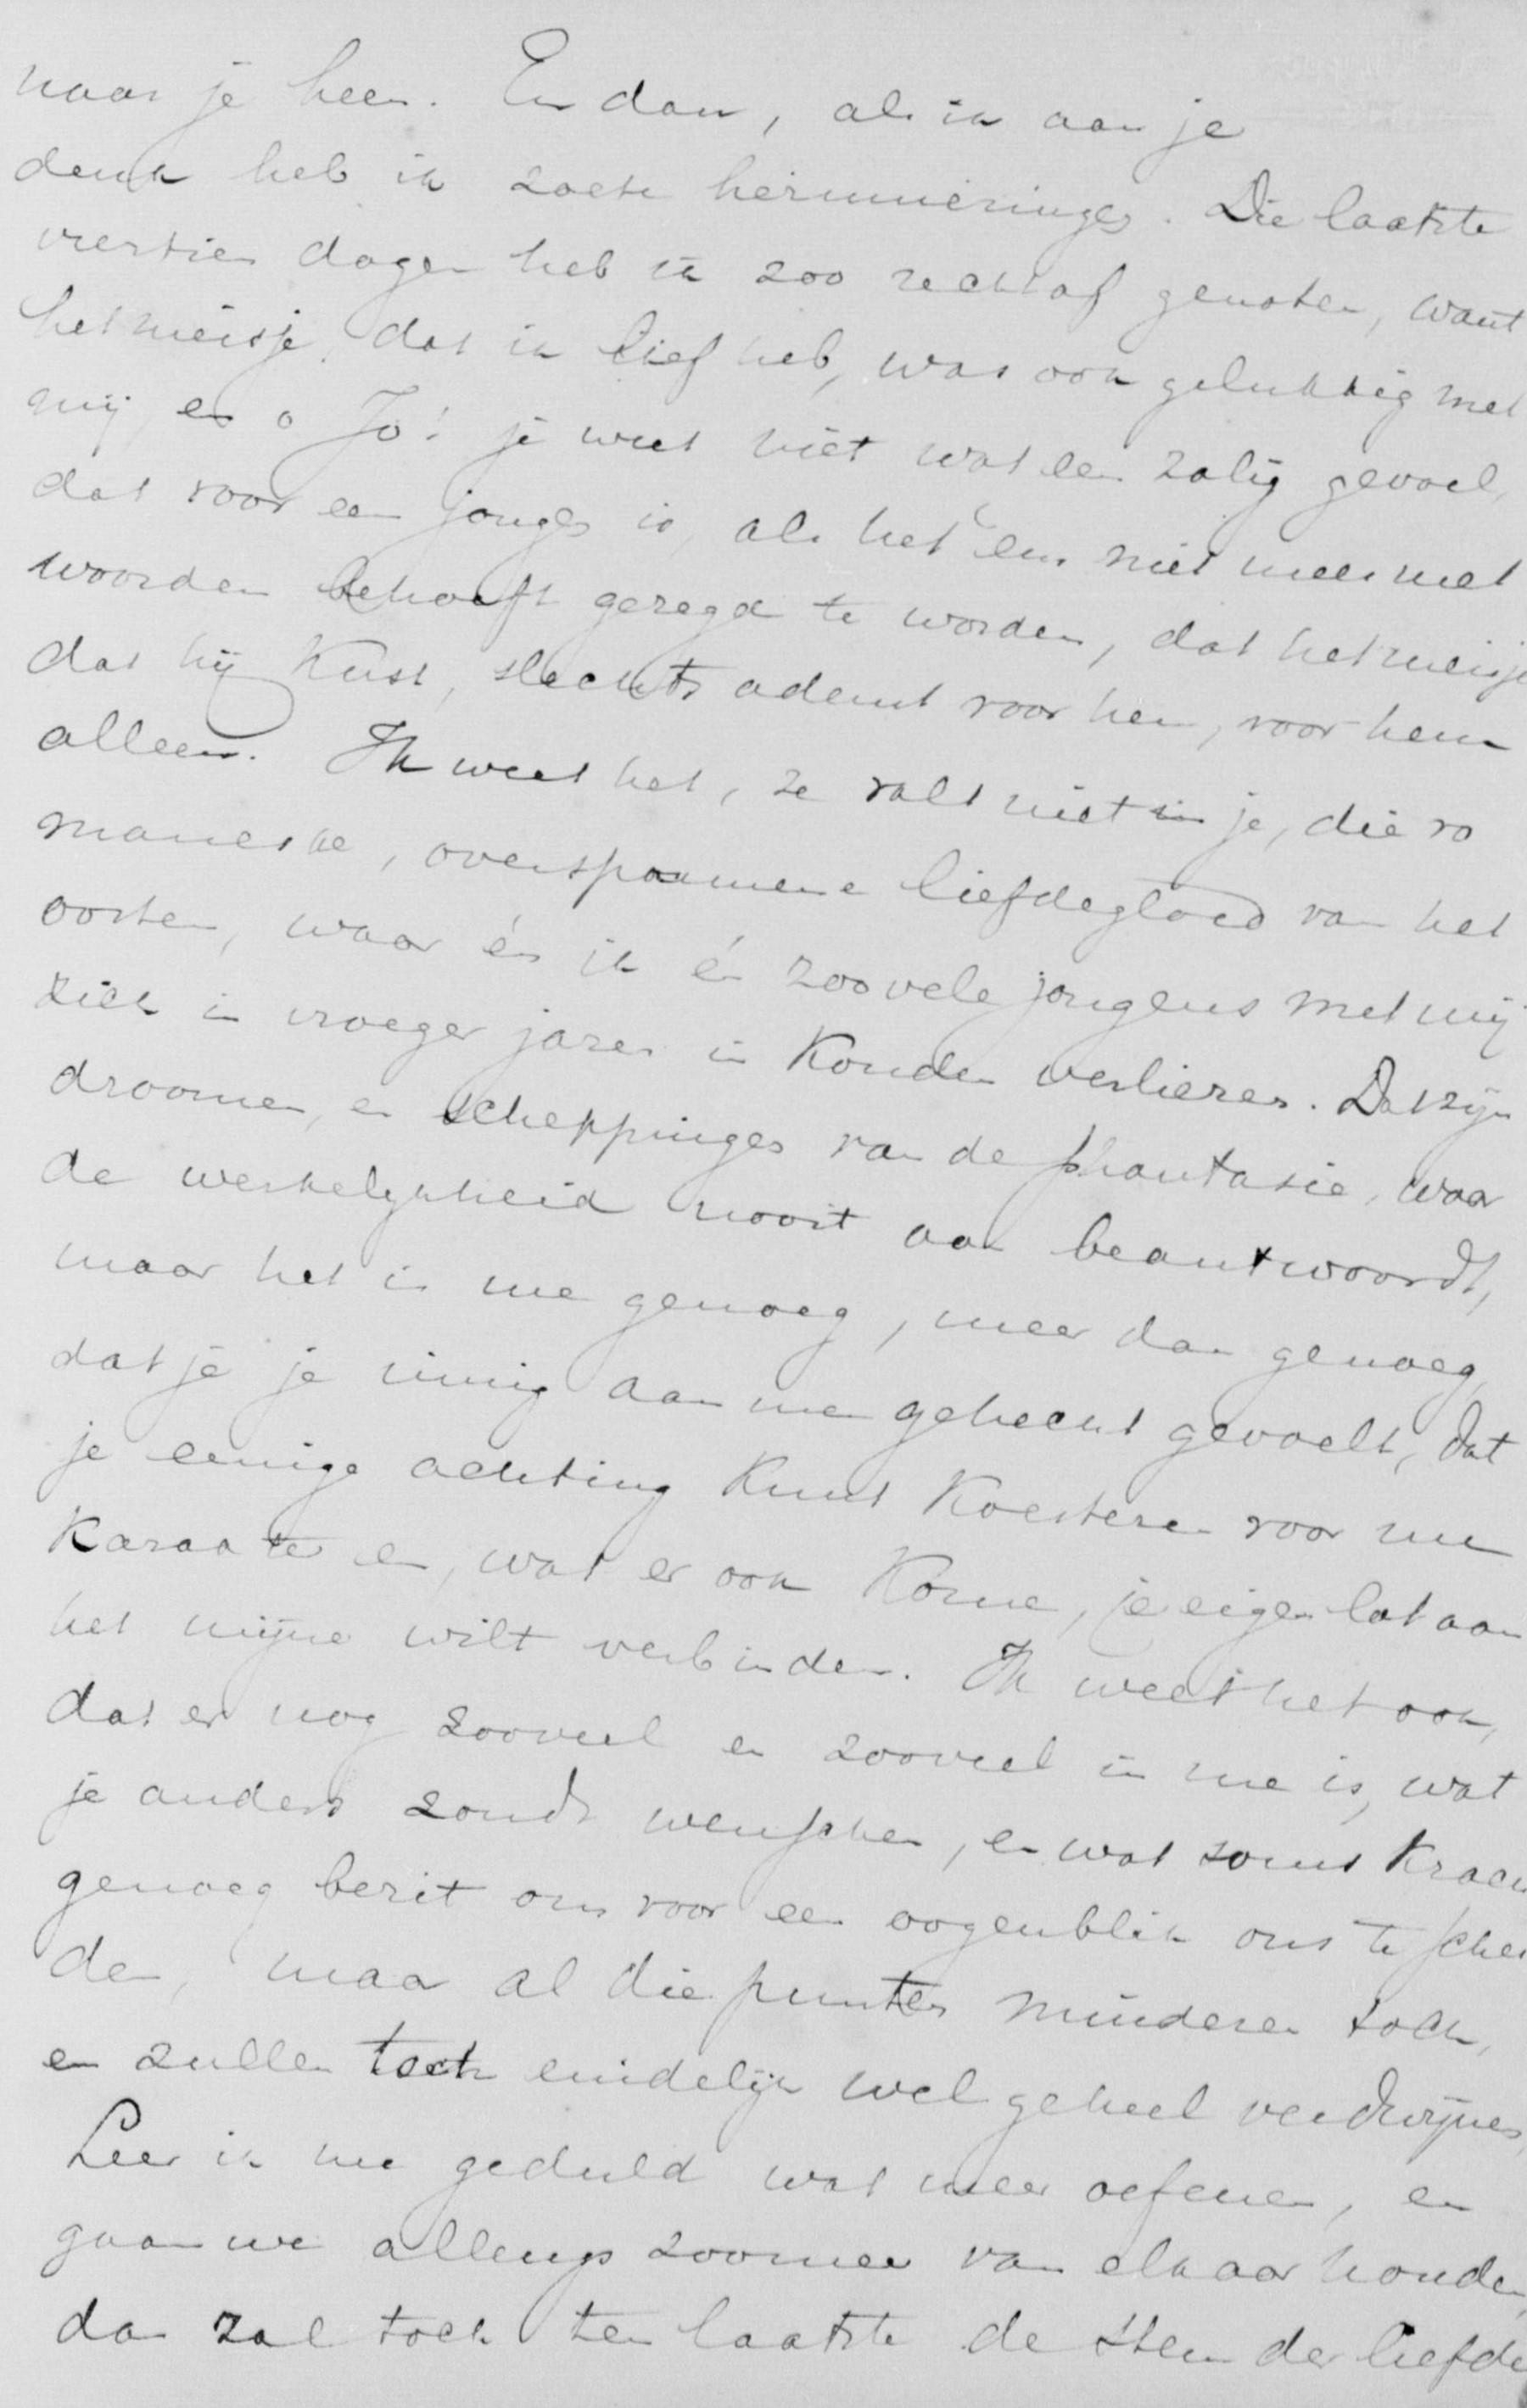 naar je heen. En dan, als ik aan je
denk heb ik zoete herinneringen. Die laatste
veertien dagen heb ik zoo rechtaf genoten, want
het meisje, dat ik lief heb, was ook gelukkig met
mij en o Jo! je weet niet wat een zalig gevoel,
dat voor een jongen is, als het em niet meer met
woorden behoeft gezegd te worden, dat het meisje
dat hij kust, slechts ademt voor hem, voor hem
alleen. Ik weet het, ze valt niet in je, die ro
maneske, overspannene liefdegloed van het
oosten, waar én ik én zoovele jongens met mij
zich in vroeger jaren in konden verliezen. Dat zijn
droomen, en scheppingen van de phantasie, waar
de werkelijkheid nooit aan beantwoordt,
maar het is me genoeg, meer dan genoeg,
dat je je innig aan me gehecht gevoelt, dat
je eenige achting kunt koesteren voor me
karakter en, wat er ook kome, je eigen lot aan
het mijne wilt verbinden. Ik weet het ook,
dat er nog zooveel en zooveel in me is, wat
je anders zoudt wenschen, en wat soms kracht
genoeg bezit om voor een oogenblik ons te schei
den, maar al die punten minderen toch,
en zullen toch eindelijk wel geheel verdwijnen,
Leer ik me geduld wat meer oefenen, en
gaan we allengs zoomeer van elkaar houden,
dan zal toch ten laatste de stem der liefde